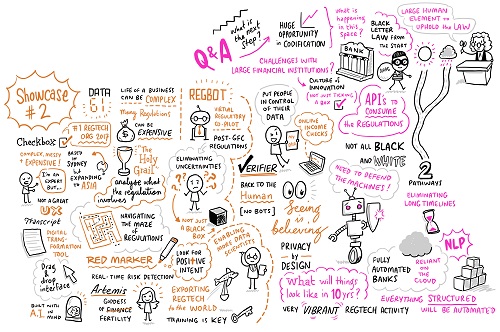 SHOWCASE
#2
Checkbox
COMPLEX, MESSY
& EXPENSIVE!
I'm an
EXPERT
BUT...
NOT A GREAT
UX
Transcript
DIGITAL
TRANSFORMATION
TOOL
Drag &
drop
interface
BUILT WITH
A.I. IN
MIND
DATA
61
#1 REGTECH
ORG 2017
BASED IN
SYDNEY
but EXPANDING
to ASIA
LIFE OF A BUSINESS
CAN BE COMPLEX
Many Regulations
CAN BE
EXPENSIVE
"The
Holy
Grail"
analyse what
the regulation
involves
NAVIGATING the
MAZE OF
REGULATIONS
RED MARKER
REAL-TIME RISK DETECTION
Artemis
GODDESS OF
FINANCE
FERTILITY
REGBOT
VIRTUAL
REGULATORY
CO-PILOT
POST-GFC
REGULATIONS
ELIMINATING
UNCERTAINTIES
NOT JUST
A BLACK
BOX
LOOK FOR
POSITIVE
INTENT
EXPORTING
REGTECH
to the WORLD
TRAINING IS KEY
ENABLING
MORE DATA
SCIENTISTS
what is
the next
step?
Q&A
HUGE
OPPORTUNITY
in CODIFICATION
CHALLENGES WITH
LARGE FINANCIAL INSTITUTIONS?
CULTURE OF
INNOVATION
(NOT JUST TICKING
A BOX)
PUT PEOPLE
IN CONTROL
OF THEIR
DATA
ONLINE
INCOME
CHECKS
VERIFIER
BACK TO THE
Human
[NO BOTS]
Seeing
is
believing
PRIVACY
BY
DESIGN
What will things
look like in 10 yrs?
VERY VIBRANT REGTECH ACTIVITY
what is
happening in
this space?
BANK
BLACK
LETTER
LAW FROM
THE START
LARGE HUMAN
ELEMENT to
UPHOLD the LAW
API's to
CONSUME
the REGULATIONS
NOT ALL BLACK
AND WHITE
2
PATHWAYS
NEED TO DEFEND
THE MACHINES!
ELIMINATING
LONG TIMELINES
FULLY
AUTOMATED
BANKS
RELIANT
ON THE
CLOUD
NLP
EVERYTHING STRUCTURED
WILL BE AUTOMATED